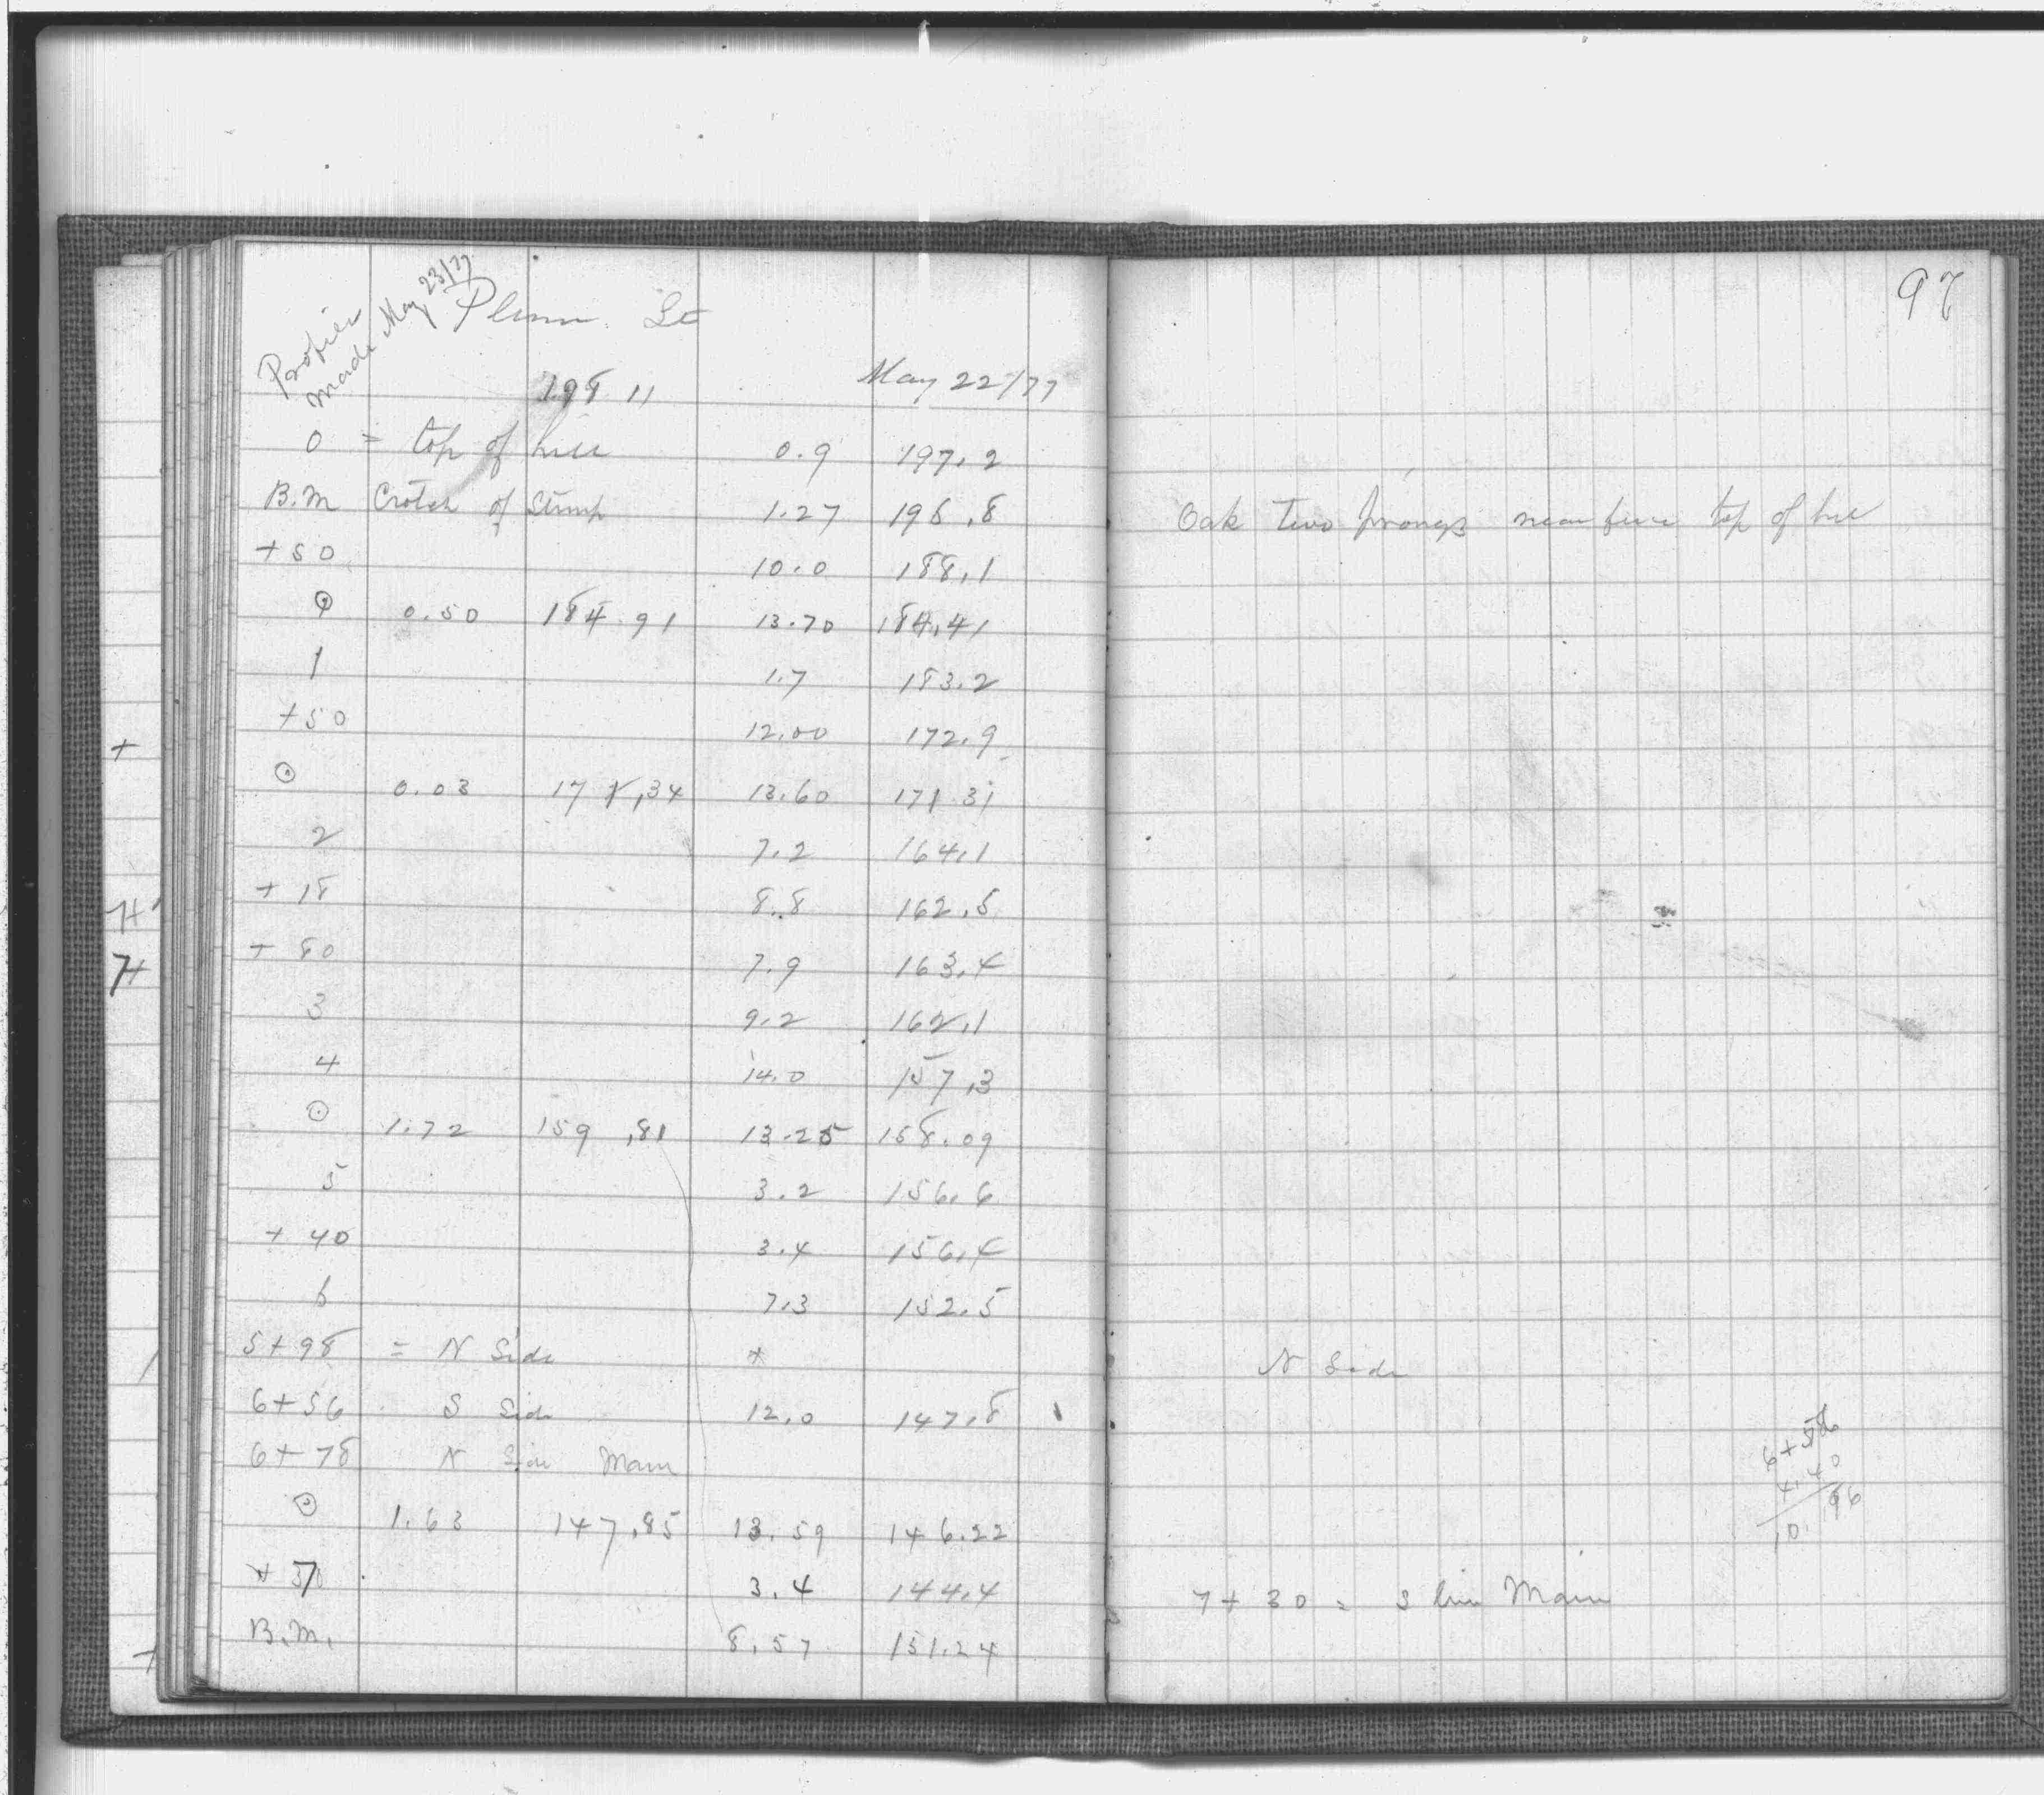 Profile made May 23/77
Plum St
198 11 May 22/77
0 = top of hill 0.9 197.2
B.M Crotch of Stump 1.27 196.8
+50 10.0 188.1
⊙ 0.50 184.91 13.70 184.41
1 1.7 183.2
+50 12.00 172.9
⊙ 0.03 171.34 13.60 171.31
2 7.2 164.1
+ 18 8.8 162.5
+ 80 7.9 163.4
3 9.2 162.1
4 14.0 157.3
⊙ 1.72 159.81 13.25 158.09
5 3.2 156.6
+ 40 3.4 156.4
6 7.3 152.5
5+98 = N Side *
6+56 S Side 12.0 147.8
6+78 N Side Main
⊙ 1.63 147.85 13.59 146.22
3.4 144.4
B.M. 8.57 151.24
97
Oak two prongs near top of hill
N Side
6+56
4.40
10.96
7+30 = S line Main
+
7+
7+